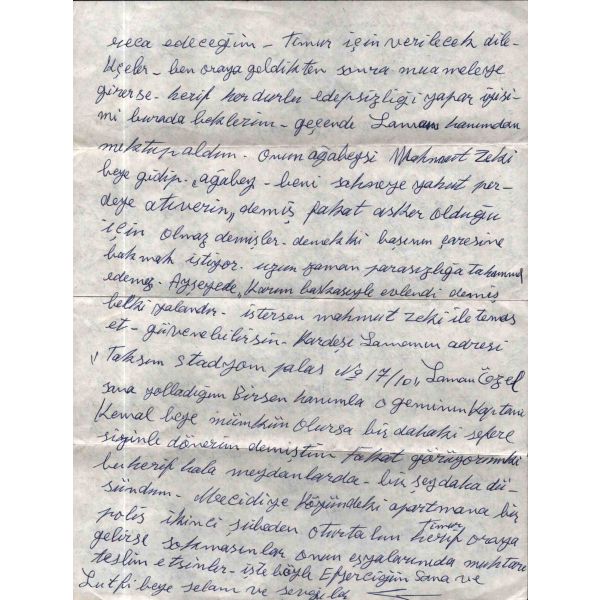 reca edeceğim - Timur için verilecek dile-
kçeler - ben oraya geldikten sonra muameleye
girerse - herif her durlu edepsizliği yapar iyisi-
mi burada beklerim - geçende Laman hanımdan
mektup aldım - onun ağabeysi Mahmut Zeki
beye gidip - "ağabey - beni sahneye yahut per-
deye atıverin" demiş fakat asker olduğu
için olmaz demişler - demekki başının çaresine
bakmak istiyor. uzun zaman parasızlığa tahammul
edemez - Ayşeyede, karım başkasıyle evlendi demiş
belki yalandır - istersen mahmut zeki ile temas
et - güvenebilirsin - Kardeşi Lamanın adresi
"Taksim stadyom palas No 17/10" Laman Özel
sana yolladığım Birsen hanımla o geminin Kaptanı
Kemal beye mümkün olursa bir dahaki sefere
sizinle dönerim demiştim fakat görüyorumki
bu herif hala meydanlarda - bir şey daha dü-
şündüm - Mecidiye Köyündeki apartmana bir
polis ikinci şubeden oturtalım Timur herif oraya
gelirse sokmasınlar onun eşyalarında muhtara
teslim etsinler - işte böyle Efserciğim Sana ve
Lutfi beye selam ve sevgiler